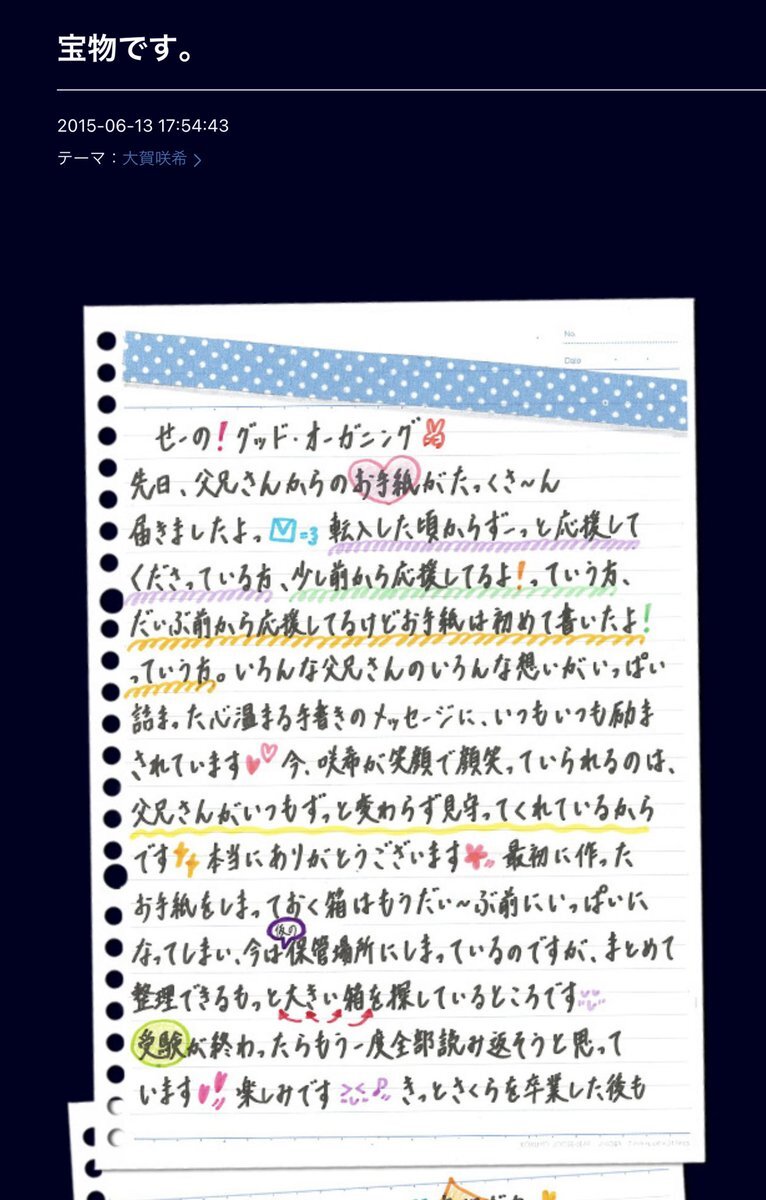 宝物です。
2015-06-13 17:54:43
テーマ：大賀咲希 >
No.
Date
せーの!グッド・オーガニング
先日、父兄さんからのお手紙がたっくさ〜ん
届きましたよっ =3 転入した頃からずーっと応援して
くださっている方、少し前から応援してるよ!っていう方、
だいぶ前から応援してるけどお手紙は初めて書いたよ!
っていう方。いろんな父兄さんのいろんな想いがいっぱい
詰まった心温まる手書きのメッセージに、いつもいつも励ま
されています 今、咲希が笑顔で顔笑っていられるのは、
父兄さんがいつもずっと変わらず見守ってくれているから
です 本当にありがとうございます 最初に作った
お手紙をしまっておく箱はもうだい〜ぶ前にいっぱいに
仮の
なってしまい、今は保管場所にしまっているのですが、まとめて
整理できるもっと大きい箱を探しているところです
受験が終わったらもう一度全部読み返そうと思って
います 楽しみです きっとさくらを卒業した後も